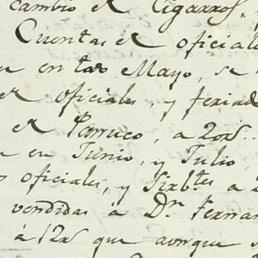 cambio de Cigarros.
Cuentas de oficiale
en tas Mayo, se
de oficiales, y feriad
de Parruco, a 20
en Junio, y Julio,
oficiales, y Sirbtes a 2
vendidas à Dn Ferna
à 12 que aunque